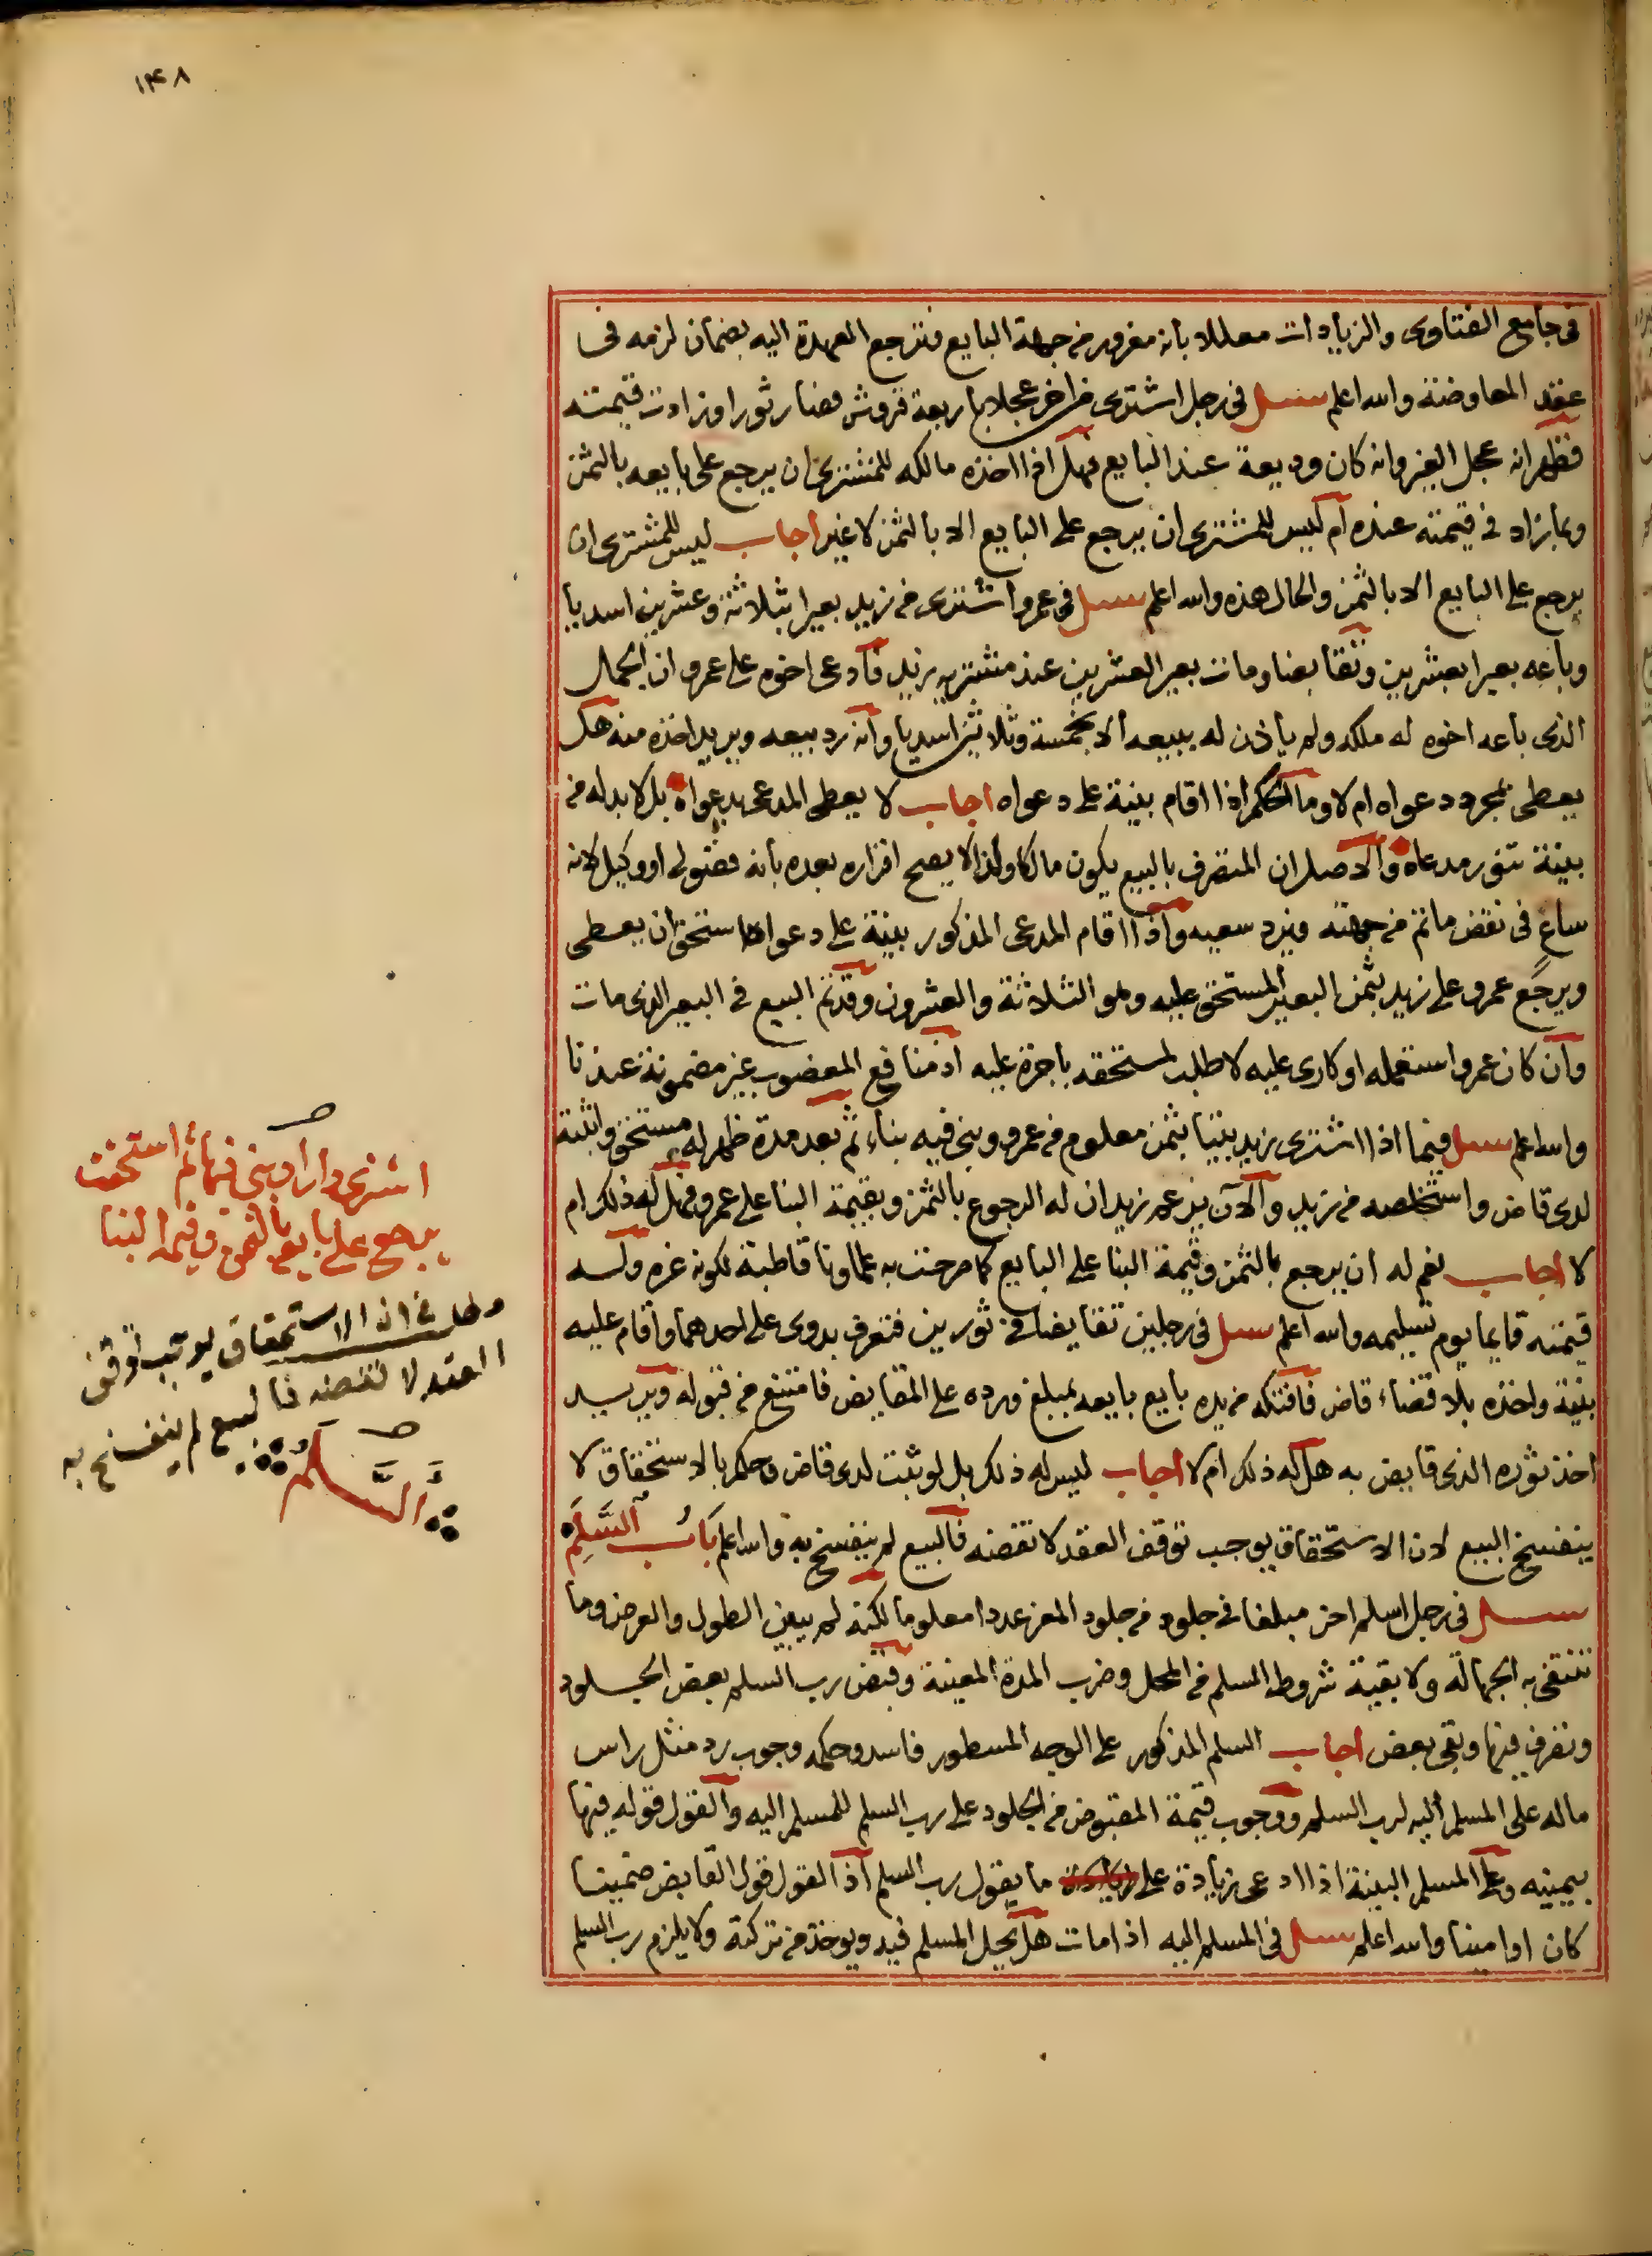 ١٤٨
فى جامع الفتاوى والزيادات معللا بانه مغرور من جهة البايع فترجع العهدة اليه بضمان لزمه فى
عقد المعاوضة والله اعلم سئل فى رجل اشترى من اخر عجلا باربعة قروش فصار ثورا وزادت قيمته
فظهر انه عجل الغير وانه كان وديعة عند البايع فهل اذا اخذه مالكه للمشترى ان يرجع على بايعه بالثمن
وبما زاد فى قيمته عنده ام ليس للمشترى ان يرجع على البايع الا بالثمن لا غير اجاب ليس للمشترى ان
يرجع على البايع الا بالثمن والحال هذه والله اعلم سئل فى عمرو اشترى من زيد بعيرا بثلاثة وعشرين اسديا
وباعه بعيرا بعشرين وتقابضا ومات بعير العشرين عند مشتريه زيد فادعى اخوه على عمرو ان الجمل
الذى باعه اخوه له ملكه ولم ياذن له ببيعه الا بخمسة وثلاثين اسديا وانه رد بيعه ويريد اخذه منه هل
يعطى بمجرد دعواه ام لا وما الحكم اذا اقام بينة على دعواه اجاب لا يعطى المدعى بدعواه بل لا بد له من
بينة تنور مدعاه والاصل ان المتصرف بالبيع يكون مالكا ولذا لا يصح اقراره بعده بانه فضولى او وكيل لانه
ساع فى نقض ما تم من جهته فيرد سعيه واذا اقام المدعى المذكور بينة على دعواه استحق ان يعطى
ويرجع عمرو على زيد بثمن البعير المستحق عليه وهو الثلاثة والعشرون وقد تم البيع فى البعير الذى مات
وان كان عمرو استعمله او كارى عليه لا طلب لمستحقه باجرة عليه اذ منافع المغصوب غير مضمونة عندنا
والله اعلم سئل فيما اذا اشترى زيد بيتا بثمن معلوم من عمرو وبنى فيه بناء ثم بعد مدة ظهر له مستحق واثبته
لدى قاض واستخلصه من زيد والان يزعم زيد ان له الرجوع بالثمن وبقيمة البنا على عمرو فهل له ذلك ام
لا اجاب نعم له ان يرجع بالثمن وقيمة البنا على البايع كما صرحت به علماونا قاطبة لكونه غره وله
قيمته قايما يوم تسليمه والله اعلم سئل فى رجلين تقايضا فى ثورين فتعرف بدوى على احدهما واقام عليه
بينة واخذه بلا قضاء قاض فافتكه من يده بايع بايعه بمبلغ ورده على المقايض فامتنع من قبوله ويريد
اخذ ثوره الذى قايض به هل له ذلك ام لا اجاب ليس له ذلك بل لو ثبت لدى قاض وحكم بالاستحقاق لا
ينفسخ البيع لان الاستحقاق يوجب توقف العقد لا نقضه فالبيع لم ينفسخ به والله اعلم بَابُ السَّلَمِ
سئل فى رجل اسلم اخر مبلغا فى جلود من جلود المعز عددا معلوما لكنه لم يبين الطول والعرض وما
تنتفى به الجهالة ولا بقية شروط السلم فى المحل وضرب المدة المعينة وقبض رب السلم بعض الجلود
وتصرف فيها وبقى بعض اجاب السلم المذكور على الوجه المسطور فاسد وحكمه وجوب رد مثل راس
ماله على المسلم اليه لرب السلم ووجوب قيمة المقبوض من الجلود على رب السلم للمسلم اليه والقول قوله فيها
بيمينه وعلى المسلم البينة اذا ادعى زيادة على ما يقول رب السلم اذ القول قول القابض ضمينا
كان او امينا والله اعلم سئل فى المسلم اليه اذا مات هل يحل المسلم فيه ويوخذ من تركته ولا يلزم رب السلم
اشترى دارا وبنى فيها ثم استحقت
يرجع على بايعه بالثمن وقيمة البنا
مطلب فى ان الاستحقاق يوجب توقف
العقد لا نقضه فالبيع لم ينفسخ به
السَّلَم